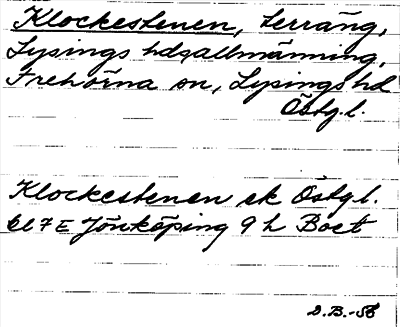 Klockestenen, terräng,
Lysings hdsallmänning,
Trehörna sn, Lysings hd
Östg.l.
Klockestenen ek Östg l.
bl 7E Jönköping 9 h Boet
D.B.-56